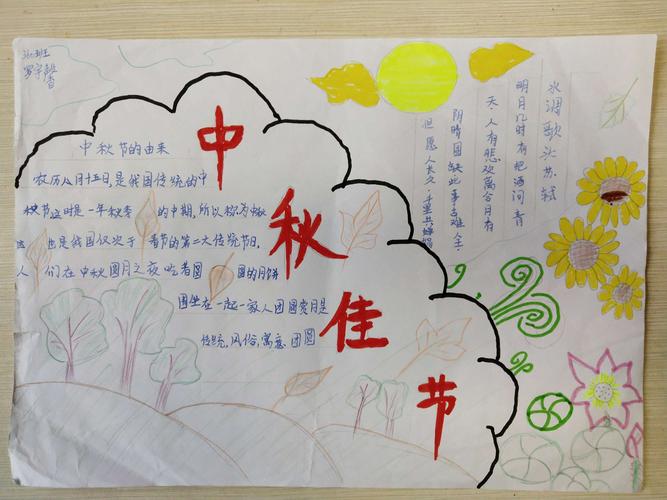 班
罗宇馨
中秋佳节
中秋节的由来
农历八月十五日,是我国传统的中
秋节这时是一年秋季的中期,所以称为中秋
也是我国仅次于春节的第二大传统节日.
人们在中秋圆月之夜吃着圆圆的月饼
围坐在一起一家人团圆赏月是
传统,风俗,寓意,团圆
水调歌头苏轼
明月几时有把酒问青
天.人有悲欢离合月有
阴晴圆缺此事古难全.
但愿人长久.千里共婵娟